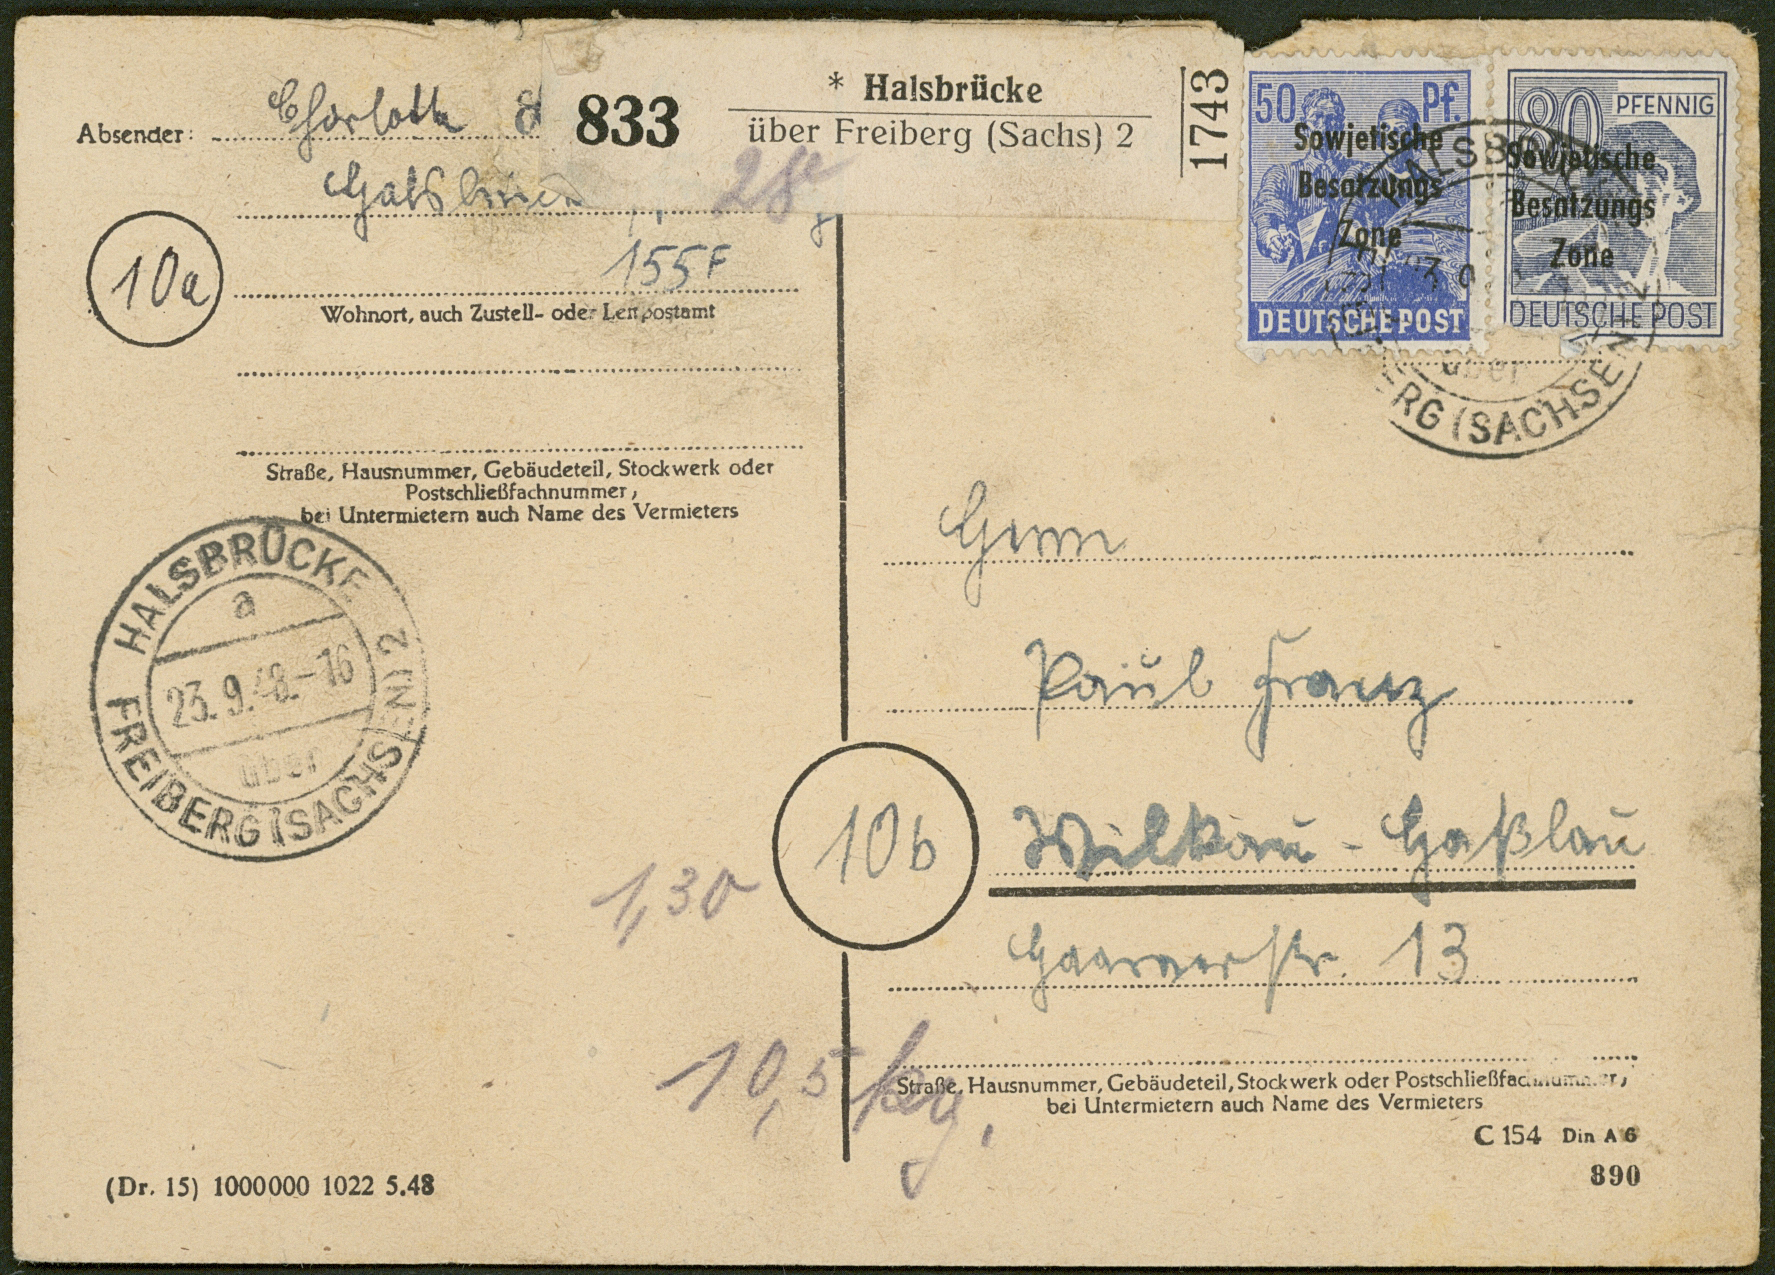 Absender: Charlotte
833
* Halsbrücke
über Freiberg (Sachs) 2
1743
Halsbrücke
155F
10a
Wohnort, auch Zustell- oder Leitpostamt
Straße, Hausnummer, Gebäudeteil, Stockwerk oder
Postschließfachnummer,
bei Untermietern auch Name des Vermieters
50 Pf.
Sowjetische
Besatzungs
Zone
DEUTSCHE POST
80 PFENNIG
Sowjetische
Besatzungs
Zone
DEUTSCHE POST
HALSBRÜCKE
a
23.9.48.-16
über
FREIBERG (SACHSEN) 2
Herrn
Paul Franz
10b
Wilkau-Haßlau
Haaraerstr. 13
1,30
10,5 kg.
Straße, Hausnummer, Gebäudeteil, Stockwerk oder Postschließfachnummer,
bei Untermietern auch Name des Vermieters
C 154 Din A 6
890
(Dr. 15) 1000000 1022 5.48